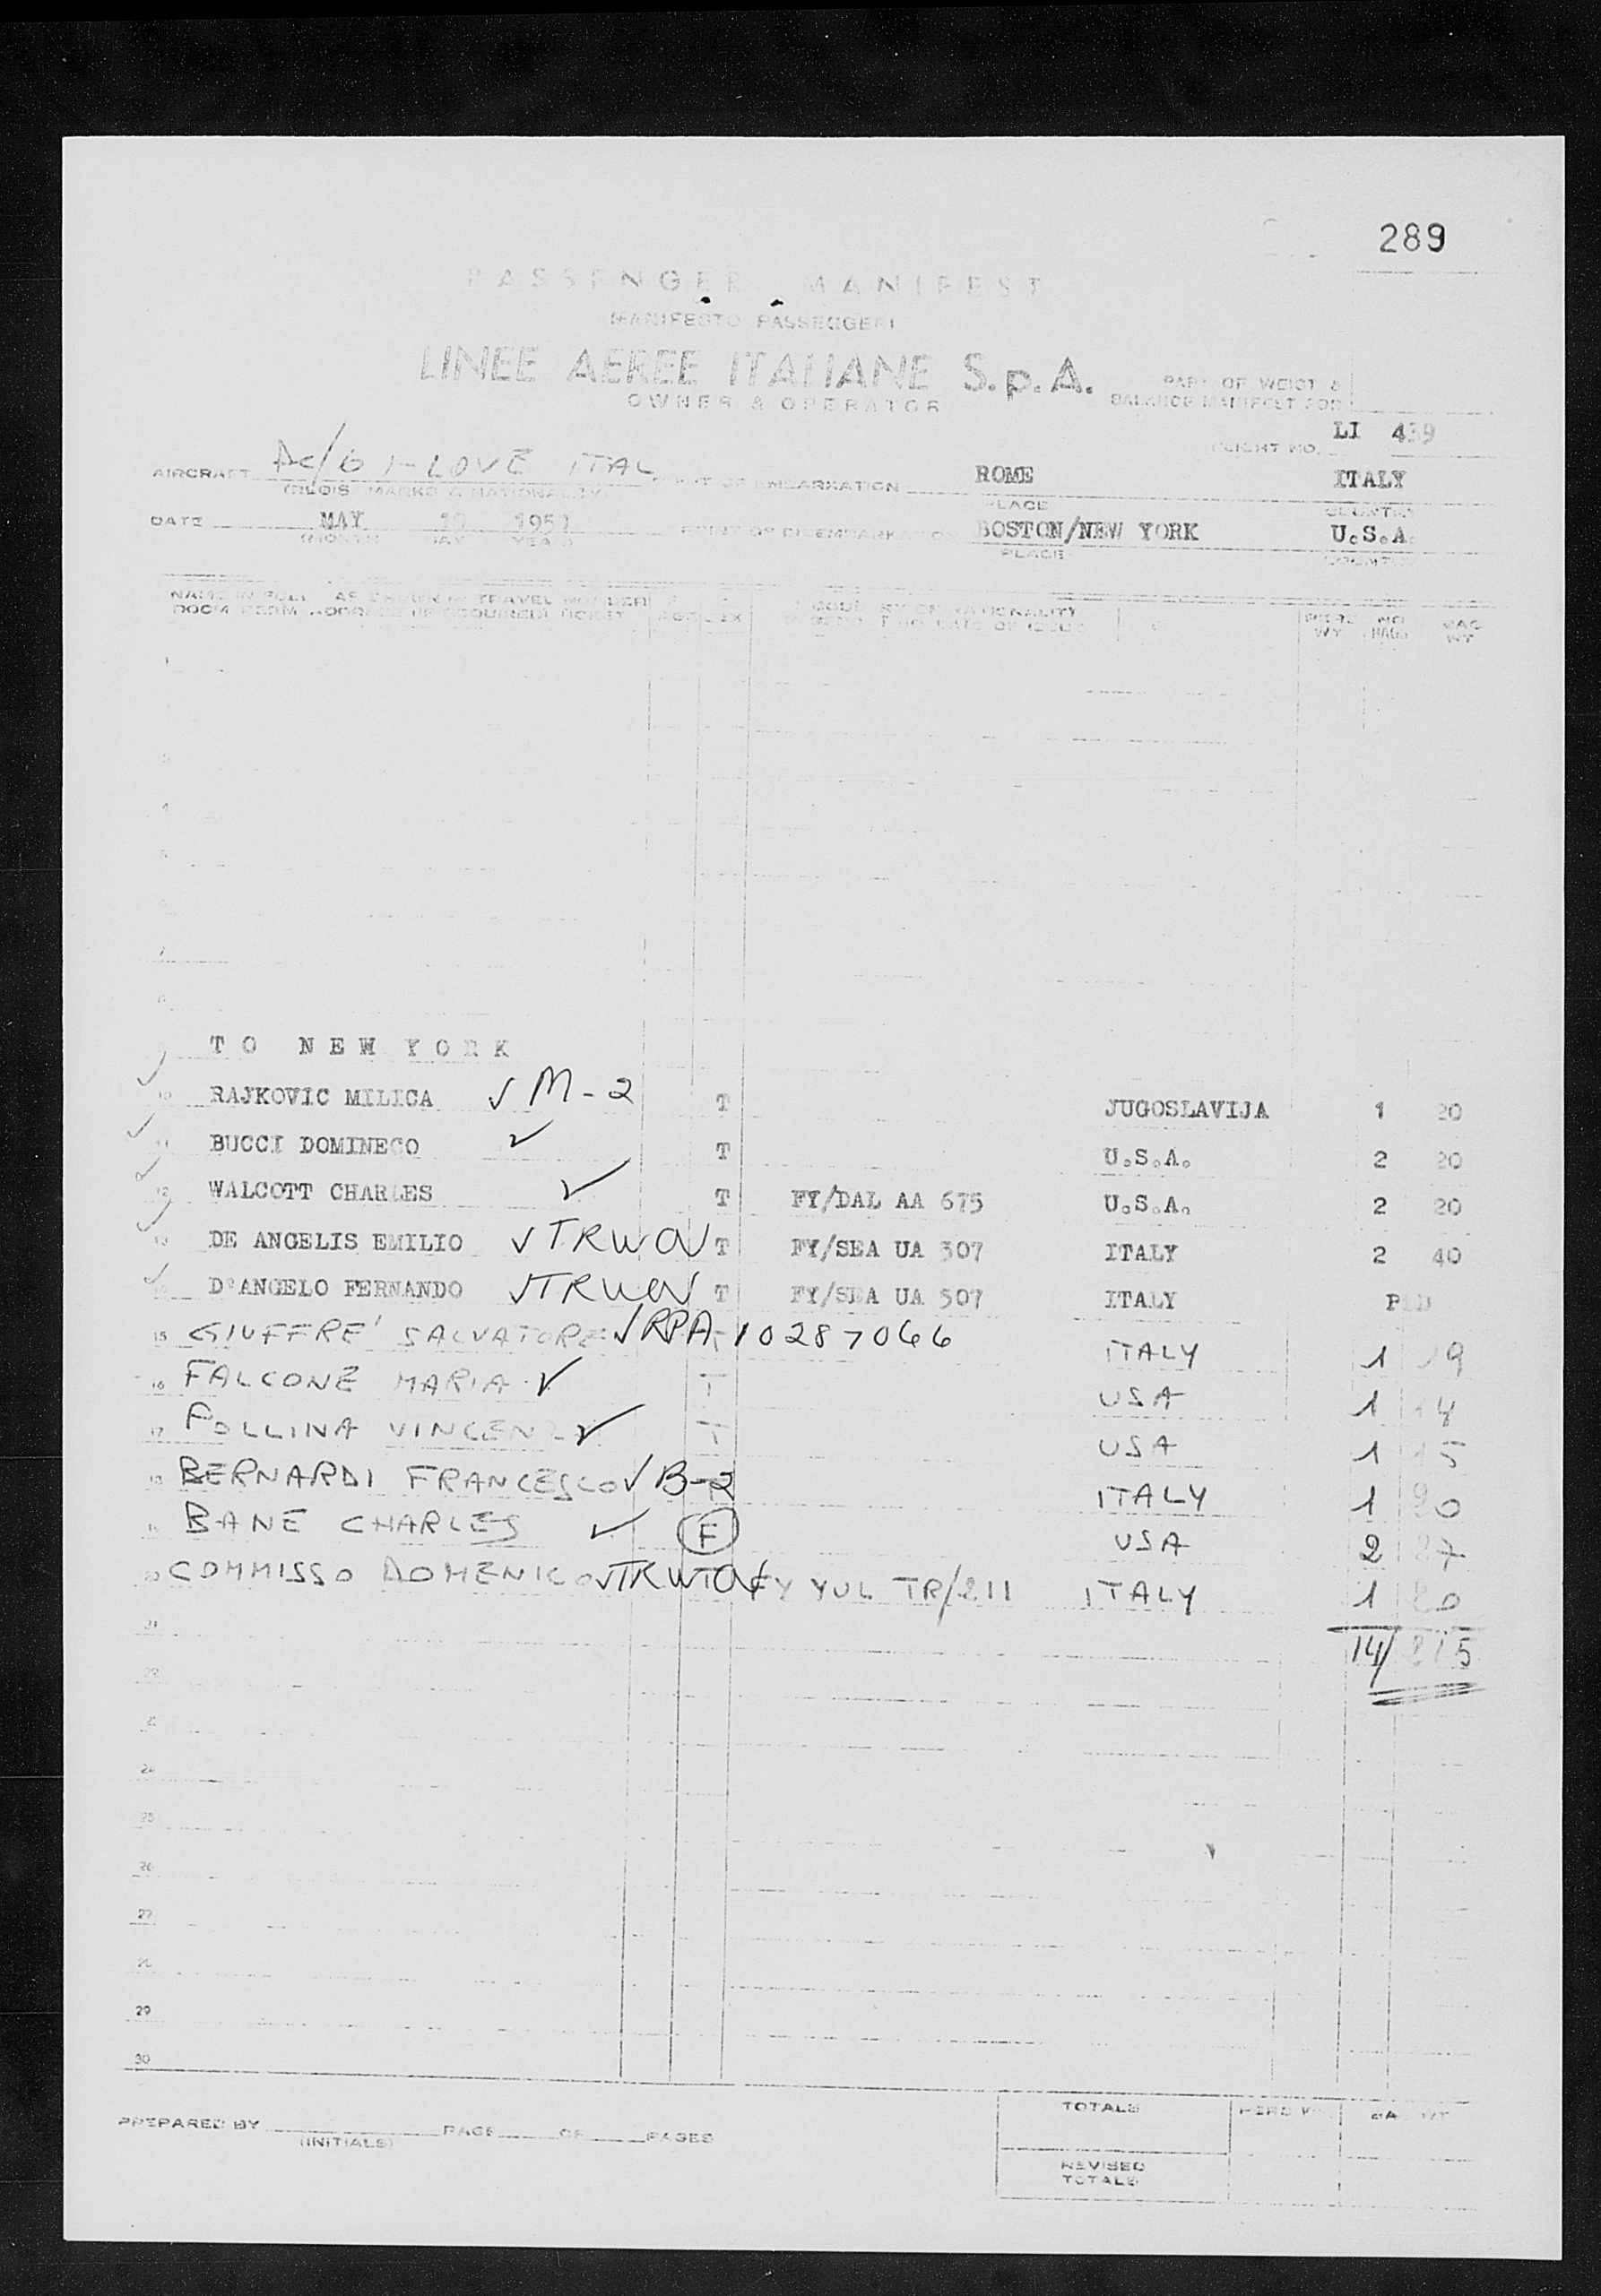 289
PASSENGER MANIFEST
MANIFESTO PASSEGGERI
LINEE AEREE ITALIANE S.p.A.
OWNER & OPERATOR
PART OF WEIGT &
BALANCE MANIFEST FOR
FLIGHT NO. LI 439
AIRCRAFT DC/6 I-LOVE ITAL POINT OF EMBARKATION ROME ITALY
MARKS & NATIONALITY PLACE COUNTRY
DATE MAY POINT OF DISEMBARKATION BOSTON/NEW YORK U.S.A.
(MONTH DAY YEAR) PLACE COUNTRY
1
3
4
5
7
TO NEW YORK
10 RAJKOVIC MILICA ✓ M-2 T JUGOSLAVIJA 1 20
11 BUCCI DOMINECO ✓ T U.S.A. 2 20
12 WALCOTT CHARLES ✓ T FY/DAL AA 675 U.S.A. 2 20
13 DE ANGELIS EMILIO ✓ TRWOV T FY/SEA UA 507 ITALY 2 40
14 D'ANGELO FERNANDO ✓ TRWOV T FY/SEA UA 507 ITALY
15 GIUFFRE' SALVATORE ✓ RPA 10287066 ITALY 1 19
16 FALCONE MARIA ✓ T USA 1 14
17 POLLINA ✓ T USA 1 15
18 BERNARDI FRANCESCO ✓ B-2 ITALY 1 20
19 BANE CHARLES ✓ F USA 2 27
20 COMMISSO DOMENICO ✓ TRWOV FY YUL TR/211 ITALY 1 20
21 14/ 215
22
23
24
25
26
27
28
29
30
PREPARED BY PAGE OF PAGES
(INITIALS)
TOTALS
REVISED
TOTALS